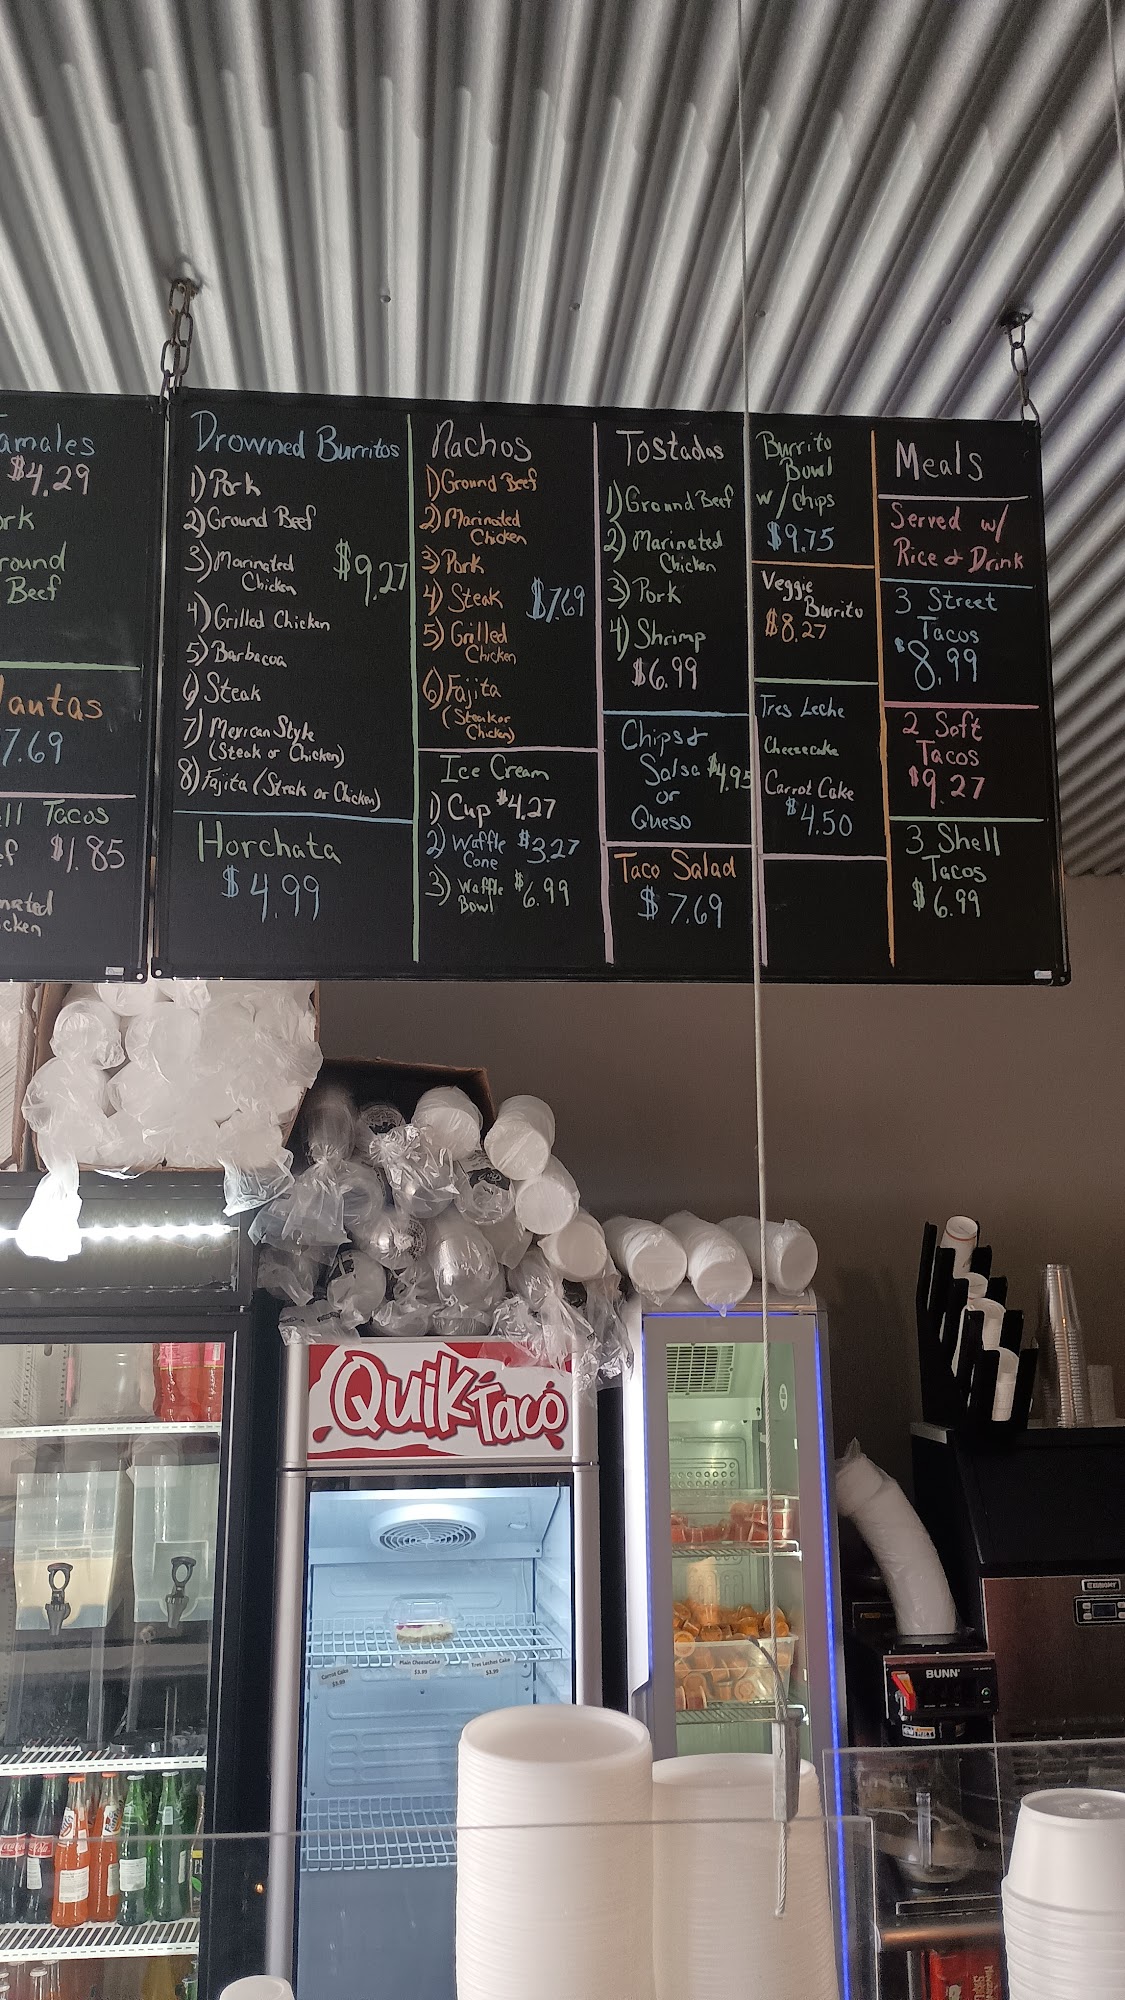 $4.29
Beef
7.69
Tacos
$1.85
Drowned Burritos
1) Pork
2) Ground Beef
3) Marinated
Chicken
$9.27
4) Grilled Chicken
5) Barbacoa
6) Steak
7) Mexican Style
(Steak or Chicken)
8) Fajita (Steak or Chicken)
Horchata
$4.99
Nachos
1) Ground Beef
2) Marinated
Chicken
3) Pork
4) Steak $7.69
5) Grilled
Chicken
6) Fajita
(Steak or
Chicken)
Ice Cream
1) Cup $4.27
2) Waffle $3.27
Cone
3) Waffle $6.99
Bowl
Tostadas
1) Ground Beef
2) Marinated
Chicken
3) Pork
4) Shrimp
$6.99
Chips &
Salsa $4.95
or
Queso
Taco Salad
$7.69
Burrito
Bowl
w/ Chips
$9.75
Veggie
Burrito
$8.27
Tres Leche
Cheesecake
Carrot Cake
$4.50
Meals
Served w/
Rice & Drink
3 Street
Tacos
$8.99
2 Soft
Tacos
$9.27
3 Shell
Tacos
$6.99
Quik Taco
Carrot Cake
$3.99
Plain CheeseCake
$3.99
Tres Leches Cake
$3.99
BUNN